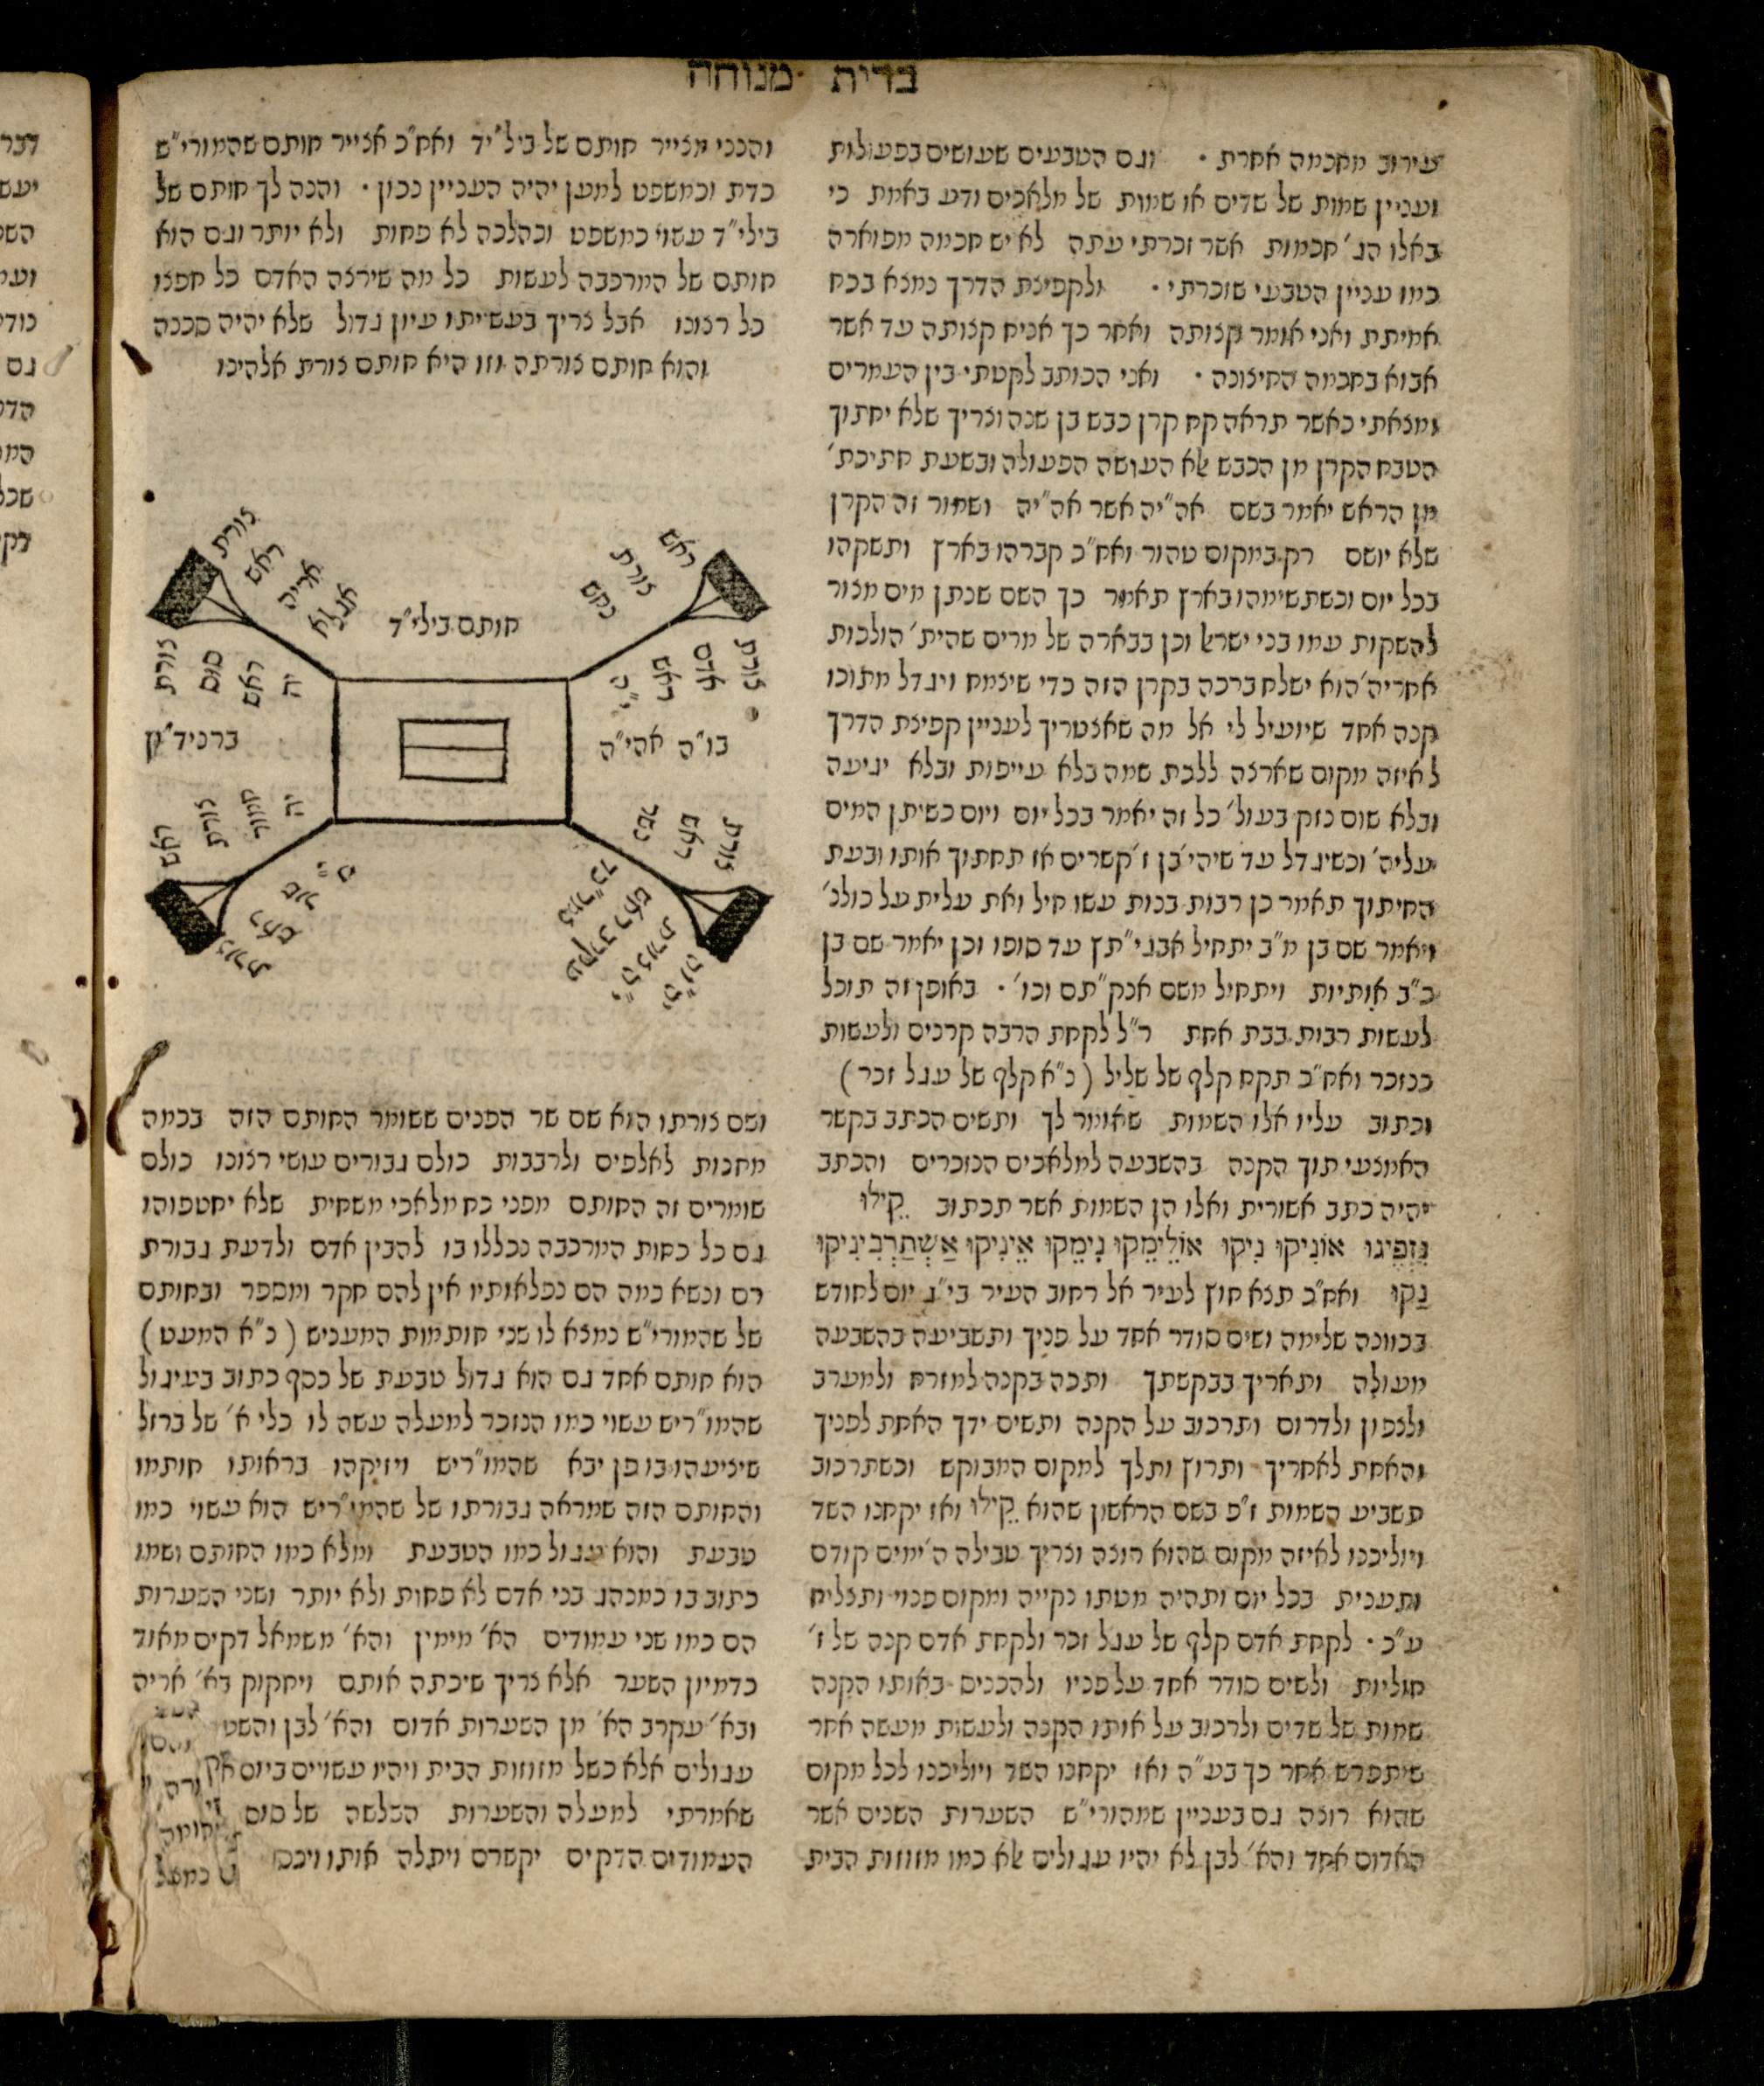 ברית מנוחה
עירוב מחכמה אחרת · וגם הטבעים שעושים בפעולות
ועניין שמות של שדים או שמות של מלאכים ודע באמת כי
באלו הג׳ חכמות אשר זכרתי עתה לא יש חכמה מפוארה
כמו עניין הטבעי שזכרתי · ולקפיצת הדרך נמצא בכח
אמיתת ואני אומר קצותה ואחר כך אניח קצותה עד אשר
אבוא בחכמה החיצונה · ואני הכותב לקטתי בין העמרים
ומצאתי כאשר תראה קח קרן כבש בן שנה וצריך שלא יחתוך
הטבח הקרן מן הכבש אלא העושה הפעולה ובשעת חתיכת׳
מן הראש יאמר בשם אה״יה אשר אה״יה ושמור זה הקרן
שלא יושם רק במקום טהור ואח״כ קברהו בארץ ותשקהו
בכל יום וכשתשימהו בארץ תאמר כך השם שנתן מים מצור
להשקות עמו בני ישראל וכן בבארה של מרים שהית׳ הולכות
אחריה׳ הוא ישלח ברכה בקרן הזה כדי שיצמח ויגדל מתוכו
קנה אחד שיועיל לי אל מה שאצטריך לעניין קפיצת הדרך
לאיזה מקום שארצה ללכת שמה בלא עייפות ובלא יגיעה
ובלא שום נזק בעול׳ כל זה יאמר בכל יום ויום כשיתן המים
עליה׳ וכשיגדל עד שיהי׳ בן ז׳ קשרים אז תחתוך אותו ובעת
החיתוך תאמר כן רבות בנות עשו חיל ואת עלית על כולנ׳
ויאמר שם בן מ״ב יתחיל אבגי״תץ עד סופו וכן יאמר שם בן
כ״ב אותיות ויתחיל משם אנק״תם וכו׳ · באופן זה תוכל
לעשות רבות בבת אחת ר״ל לקחת הרבה קרנים ולעשות
כנזכר ואח״ב תקח קלף של שליל ( נ״א קלף של עגל זכר )
וכתוב עליו אלו השמות שאומר לך ותשים הכתב בקשר
האמצעי תוך הקנה בהשבעה למלאכים הנזכרים והכתב
יהיה כתב אשורית ואלו הן השמות אשר תכתוב קֵילוּ
אוֹנִיקוּ נִיקוּ אוֹלֵימֵקוּ נִימֵקוּ אֵינִיקוּ אַשְׁתַּרְבִינִיקוּ
נַקוּ ואח״כ תצא חוץ לעיר אל רחוב העיר בי״ג יום לחודש
בכוונה שלימה ושים סודר אחד על פניך ותשביעה בהשבעה
מעולה ותאריך בבקשתך ותכה בקנה למזרח ולמערב
ולצפון ולדרום ותרכוב על הקנה ותשים ידך האחת לפניך
והאחת לאחריך ותרוץ ותלך למקום המבוקש וכשתרכוב
תשביע השמות ז״פ בשם הראשון שהוא קֵילוּ ואז יקחנו השד
ויוליכנו לאיזה מקום שהוא רוצה וצריך טבילה ה׳ ימים קודם
ותענית בכל יום ותהיה מטתו נקייה ומקום פנוי ותצליח
ע״כ · לקחת אדם קלף של עגל זכר ולקחת אדם קנה של ז׳
חוליות ולשים סודר אחד על פניו ולהכניס באותו הקנה
שמות של שדים ולרכוב על אותו הקנה ולעשות מעשה אחר
שיתפרש אחר כך בע״ה ואז יקחנו השד ויוליכנו לכל מקום
שהוא רוצה גם בעניין שמהורי״ש השערות השנים אשר
האדום אחד והא׳ לבן לא יהיו עגולים אלא כמו מזוזות הבית
והנני מצייר חותם של ביל״יד ואח״כ אצייר חותם שהמורי״ש
כדת וכמשפט למען יהיה העניין נכון · והנה לך חותם של
בילי״ד עשוי כמשפט וכהלכה לא פחות ולא יותר וגם הוא
חותם של המרכבה לעשות כל מה שירצה האדם כל חפצו
כל רצונו אבל צריך בעשייתו עיון גדול שלא יהיה סכנה
והוא חותם צורתה וזו היא חותם צורת אלהינו
צורת ראש אריה אגלא
ראש צורת
חותם בילי״ד
צורת סוס ראש יה
צורת אדם ראש
ברניד״קן
בו״ה אהי״ה
ראש צורת יה
צורת ראש נשר
צורת ראש שור
עקרב ראש צורת
ושם צורתו הוא שם שר הפנים ששומר החותם הזה בכמה
מחנות לאלפים ולרבבות כולם גבורים עושי רצונו כולם
שומרים זה החותם מפני כח מלאכי משחית שלא יחטפוהו
גם כל כחות המרכבה נכללו בו להבין אדם ולדעת גבורת
רם ונשא כמה הם נפלאותיו אין להם חקר ומספר ובחותם
של שהמורי״ש נמצא לו שני חותמות המעניש ( נ״א המעט )
הוא חותם אחד גם הוא גדול טבעת של כסף כתוב בעיגול
שהמו״ריש עשוי כמו הנזכר למעלה עשה לו כלי א׳ של ברזל
שיציעהו בו פן יבא שהמו״ריש ויזיקהו בראותו חותמו
והחותם הזה שמראה גבורתו של שהמו״ריש הוא עשוי כמו
טבעת והוא עגול כמו הטבעת ומלא כמו החותם ושמו
כתוב בו כמנהג בני אדם לא פחות ולא יותר ושני השערות
הם כמו שני עמודים הא׳ מימין והא׳ משמאל דקים מאוד
כדמיון השער אלא צריך שיכתה אותם ויחקוק בא׳ אריה
ובא׳ עקרב הא׳ מן השערות אדום והא׳ לבן
עגולים אלא כשל מזוזות הבית ויהיו עשויים ביום
שאמרתי למעלה והשערות השלשה של סוס
העמודים הדקים יקשרם ויתלה אותו